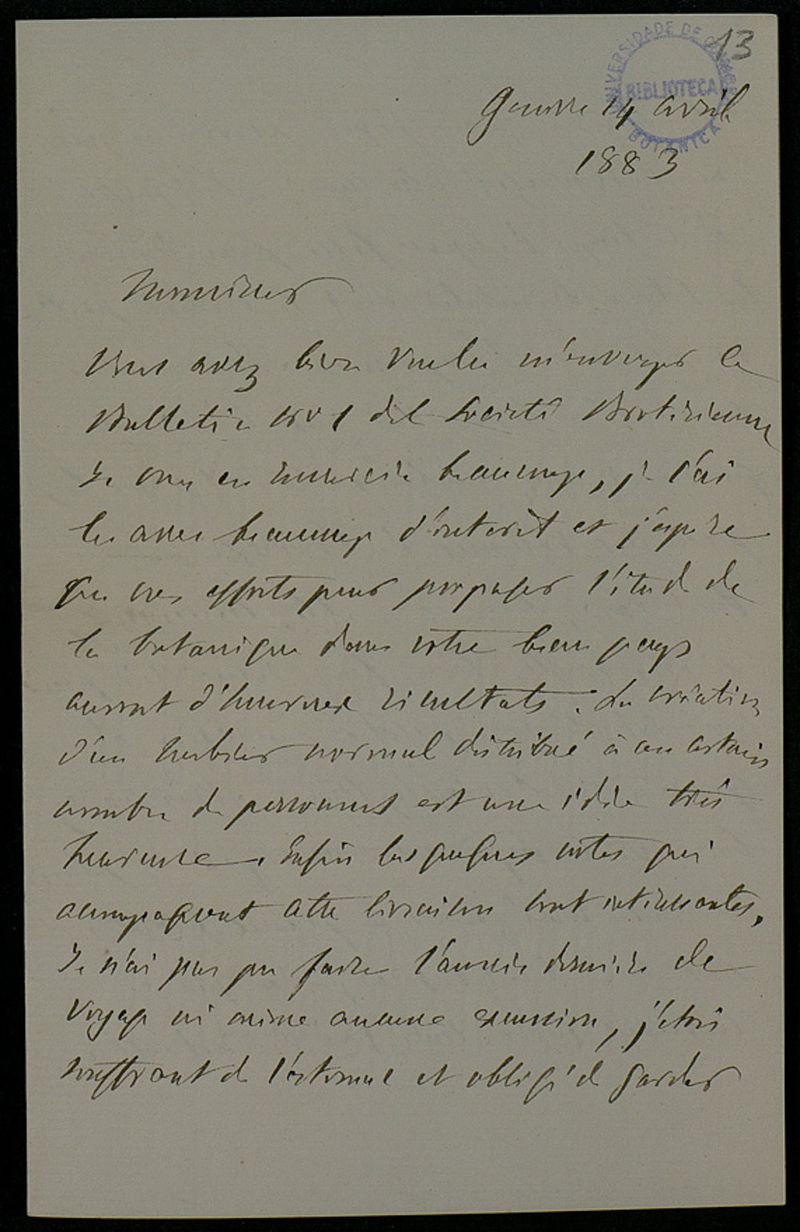 13
UNIVERSIDADE DE COIMBRA
BIBLIOTECA
BOTANICA
Genève 14 avril
1883
Monsieur
Vous avez bien voulu m'envoyer le
Bulletin no 1 de la Société Brotérienne
Je vous en remercie beaucoup, je l'ai
lu avec beaucoup d'intérêt et j'espère
que vos efforts pour propager l'étude de
la botanique dans votre beau pays
auront d'heureux résultats. La création
d'un herbier normal distribué à un certain
nombre de personnes est une idée très
heureuse. Enfin les quelques notes qui
accompagnent cette livraison sont intéressantes.
Je n'ai pas pu faire l'année dernière de
voyage ni même aucune excursion, j'étais
souffrant de l'estomac et obligé de garder